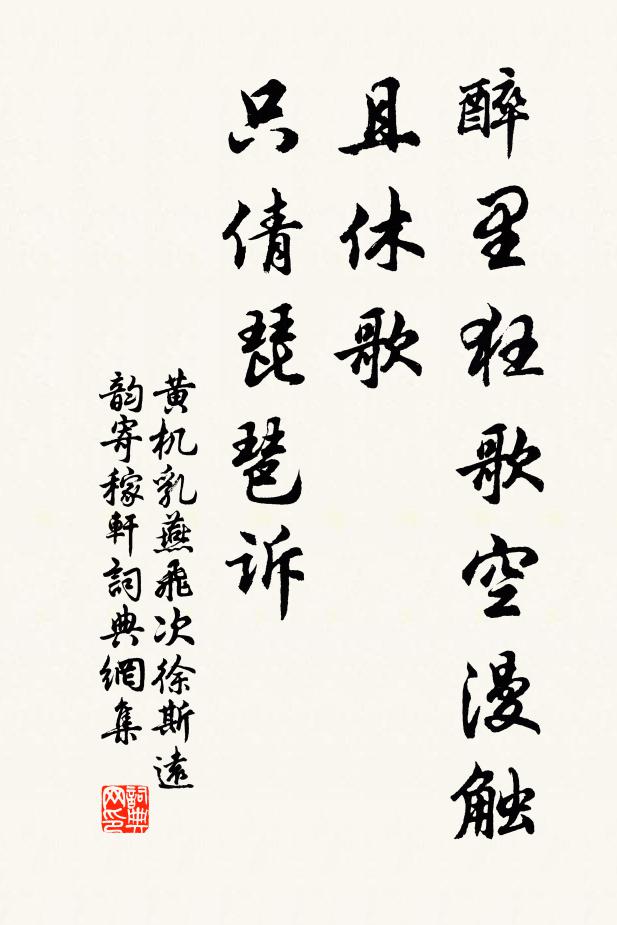 醉里狂歌空漫触
且休歌
只倩琵琶诉
黄机乳燕飞次徐斯遠
韵寄稼軒詞典網集
詞典
网印